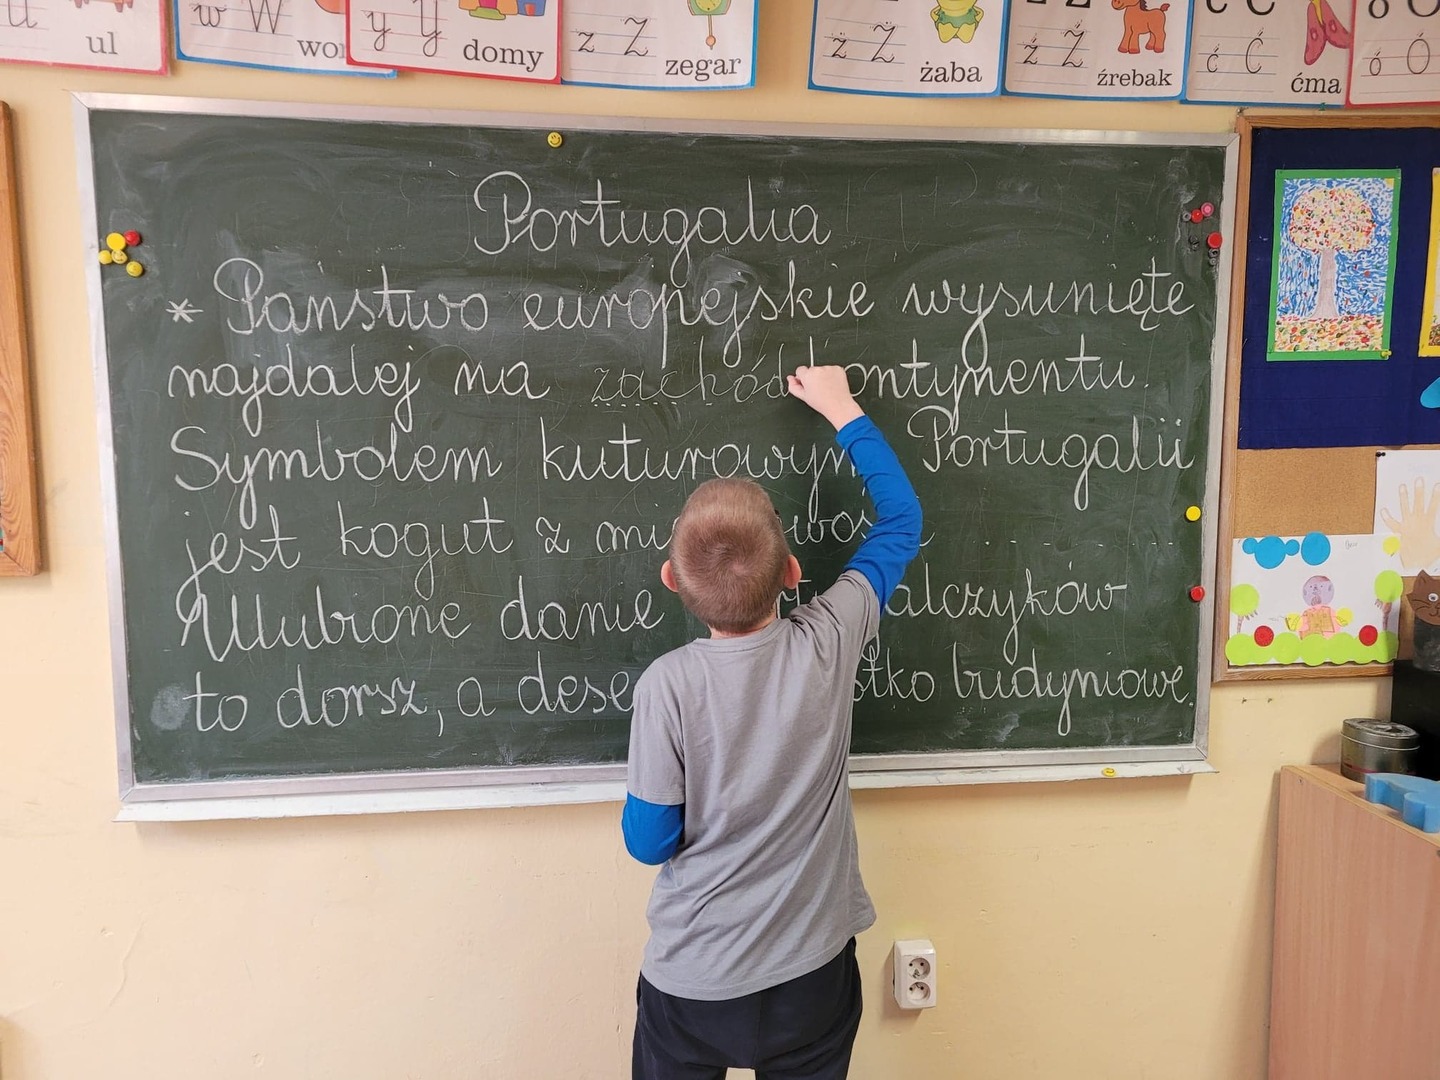 ul
w W
y Y domy
z Z zegar
ż Ż żaba
ź Ź źrebak
ć Ć ćma
ó Ó
Portugalia
* Państwo europejskie wysunięte
najdalej na zachód kontynentu.
Symbolem kuturowym Portugalii
jest kogut z
Ulubione danie
to dorsz, a budyniowe.